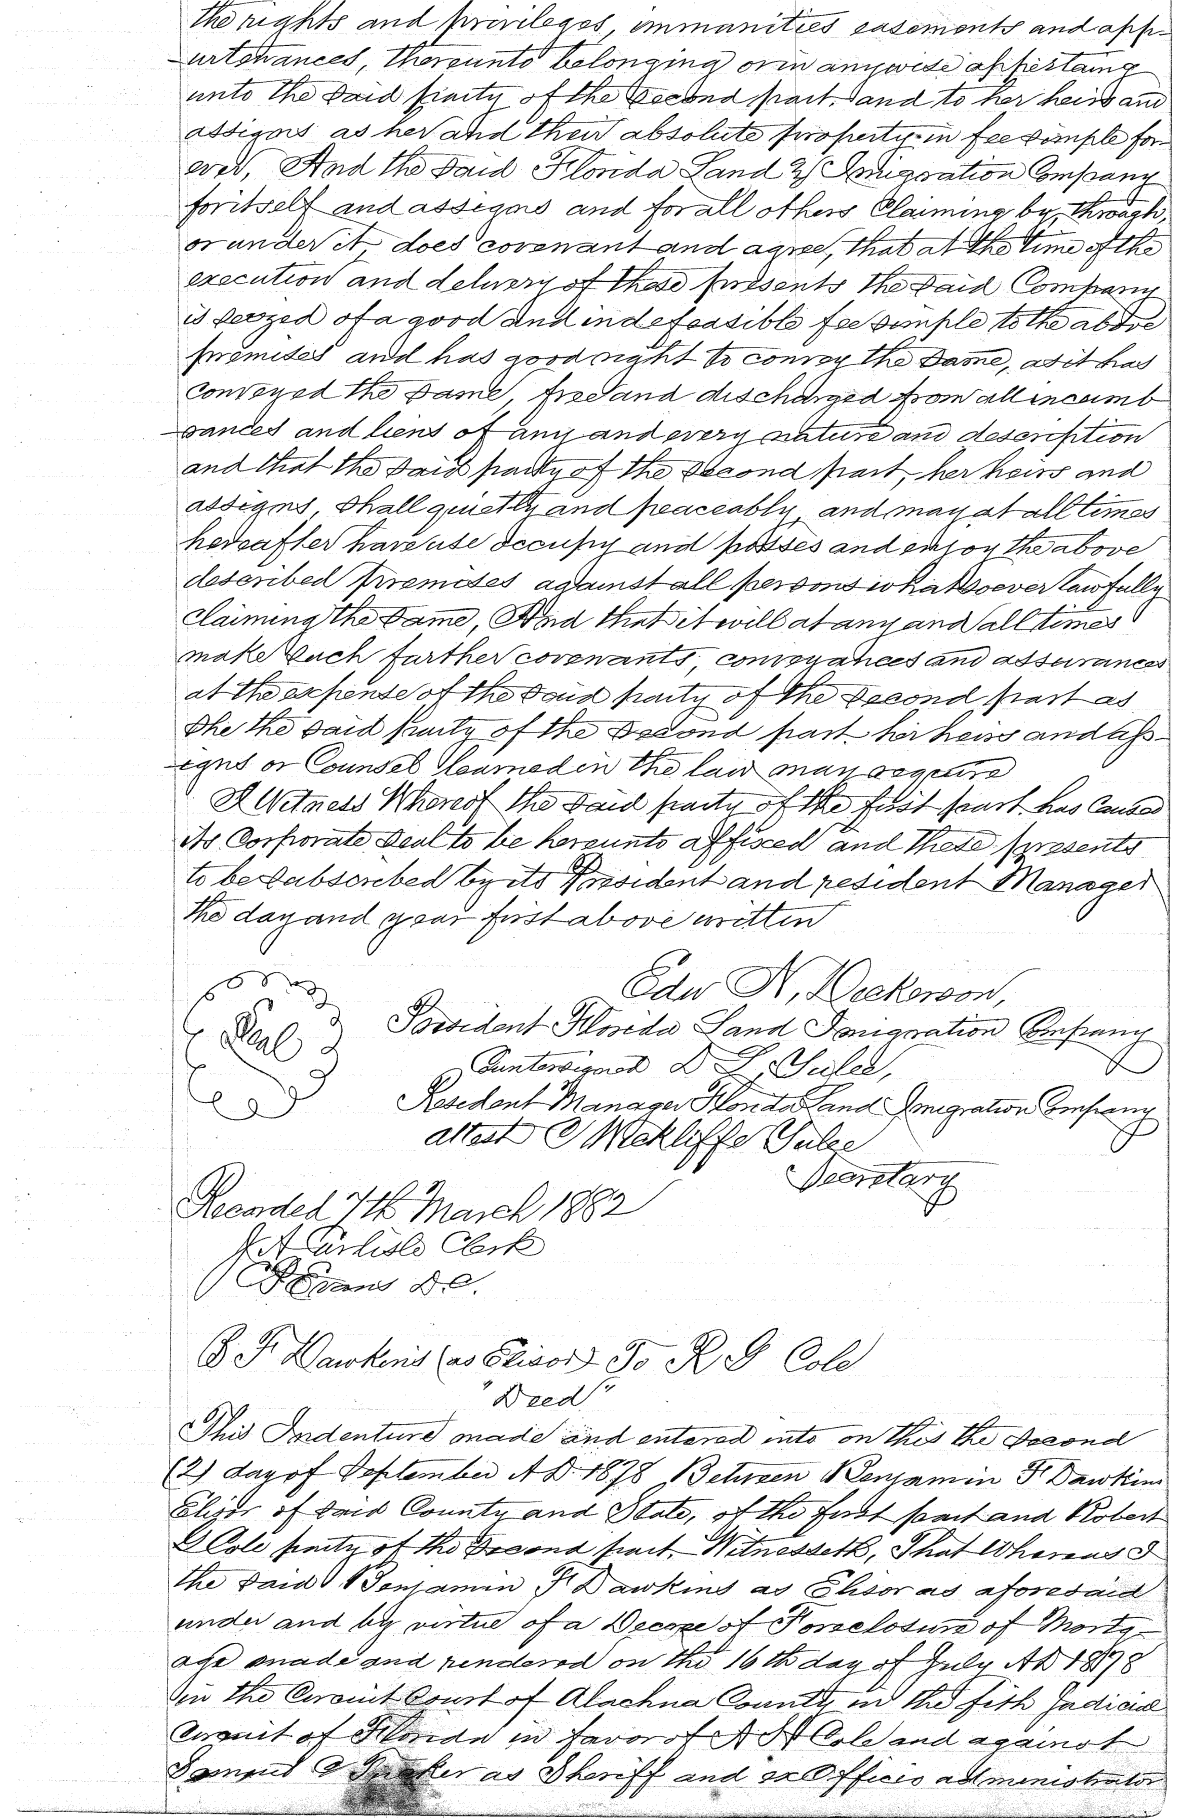 the rights and privileges, immanities easements and app-
urtenances, thereunto belonging or in anywise appertaing
unto the said party of the second part, and to her heirs and
assigns as her and their absolute property in fee simple for-
ever, And the said Florida Land & Imigration Company
for itself and assigns and for all others claiming by, through,
or under it, does covenant and agree, that at the time of the
execution and delivery of these presents the said Company
is seized of a good and indefeasible fee simple to the above
premises and has good right to convey the same, as it has
conveyed the same, free and discharged from all incumb
rances and liens of any and every nature and description
and that the said party of the second part, her heirs and
assigns, shall quietly and peaceably, and may at all times
hereafter have use occupy and posses and enjoy the above
described premises against all persons whatsoever lawfully
claiming the same, And that it will at any and all times
make such further covenants, conveyances and assurances
at the expense of the said party of the second part as
she the said party of the second part. her heirs and ass-
igns or Counsel learned in the law may require
In Witness Whereof the said party of the first part has caused
its Corporate Seal to be hereunto affixed and these presents
to be subscribed by its President and resident Manager
the day and year first above written
Edw N, Dickerson,
Seal
President Florida Land Imigration Company
Countersigned D L Yulee,
Resident Manager Florida Land Imigration Company
attest C Wickliffe Yulee
Secretary
Recorded 7th March 1882
J A Carlisle Clerk
Evans D.C.
B F Dawkins (as Elisor) To R G Cole
"Deed"
This Indenture made and entered into on this the Second
(2) day of September A D 1878 Between Benjamin F Dawkins
Elisor of said County and State, of the first part and Robert
G Cole party of the second part. Witnesseth, That Whereas I
the said Benjamin F Dawkins as Elisor as aforesaid
under and by virtue of a Decree of Foreclosure of Mortg-
age made and rendered on the 16th day of July A D 1878
in the Circuit Court of Alachua County in the fith Judicial
Circuit of Florida in favor of Cole and against
Samuel as Sheriff and ex Officio administrator